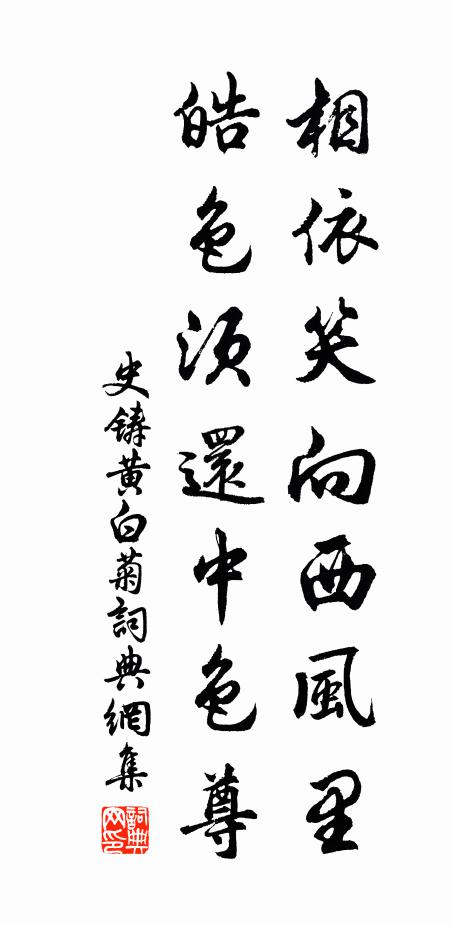 相依笑向西風里
皓色須還中色尊
史鑄黃白菊詞典網集
詞典网印